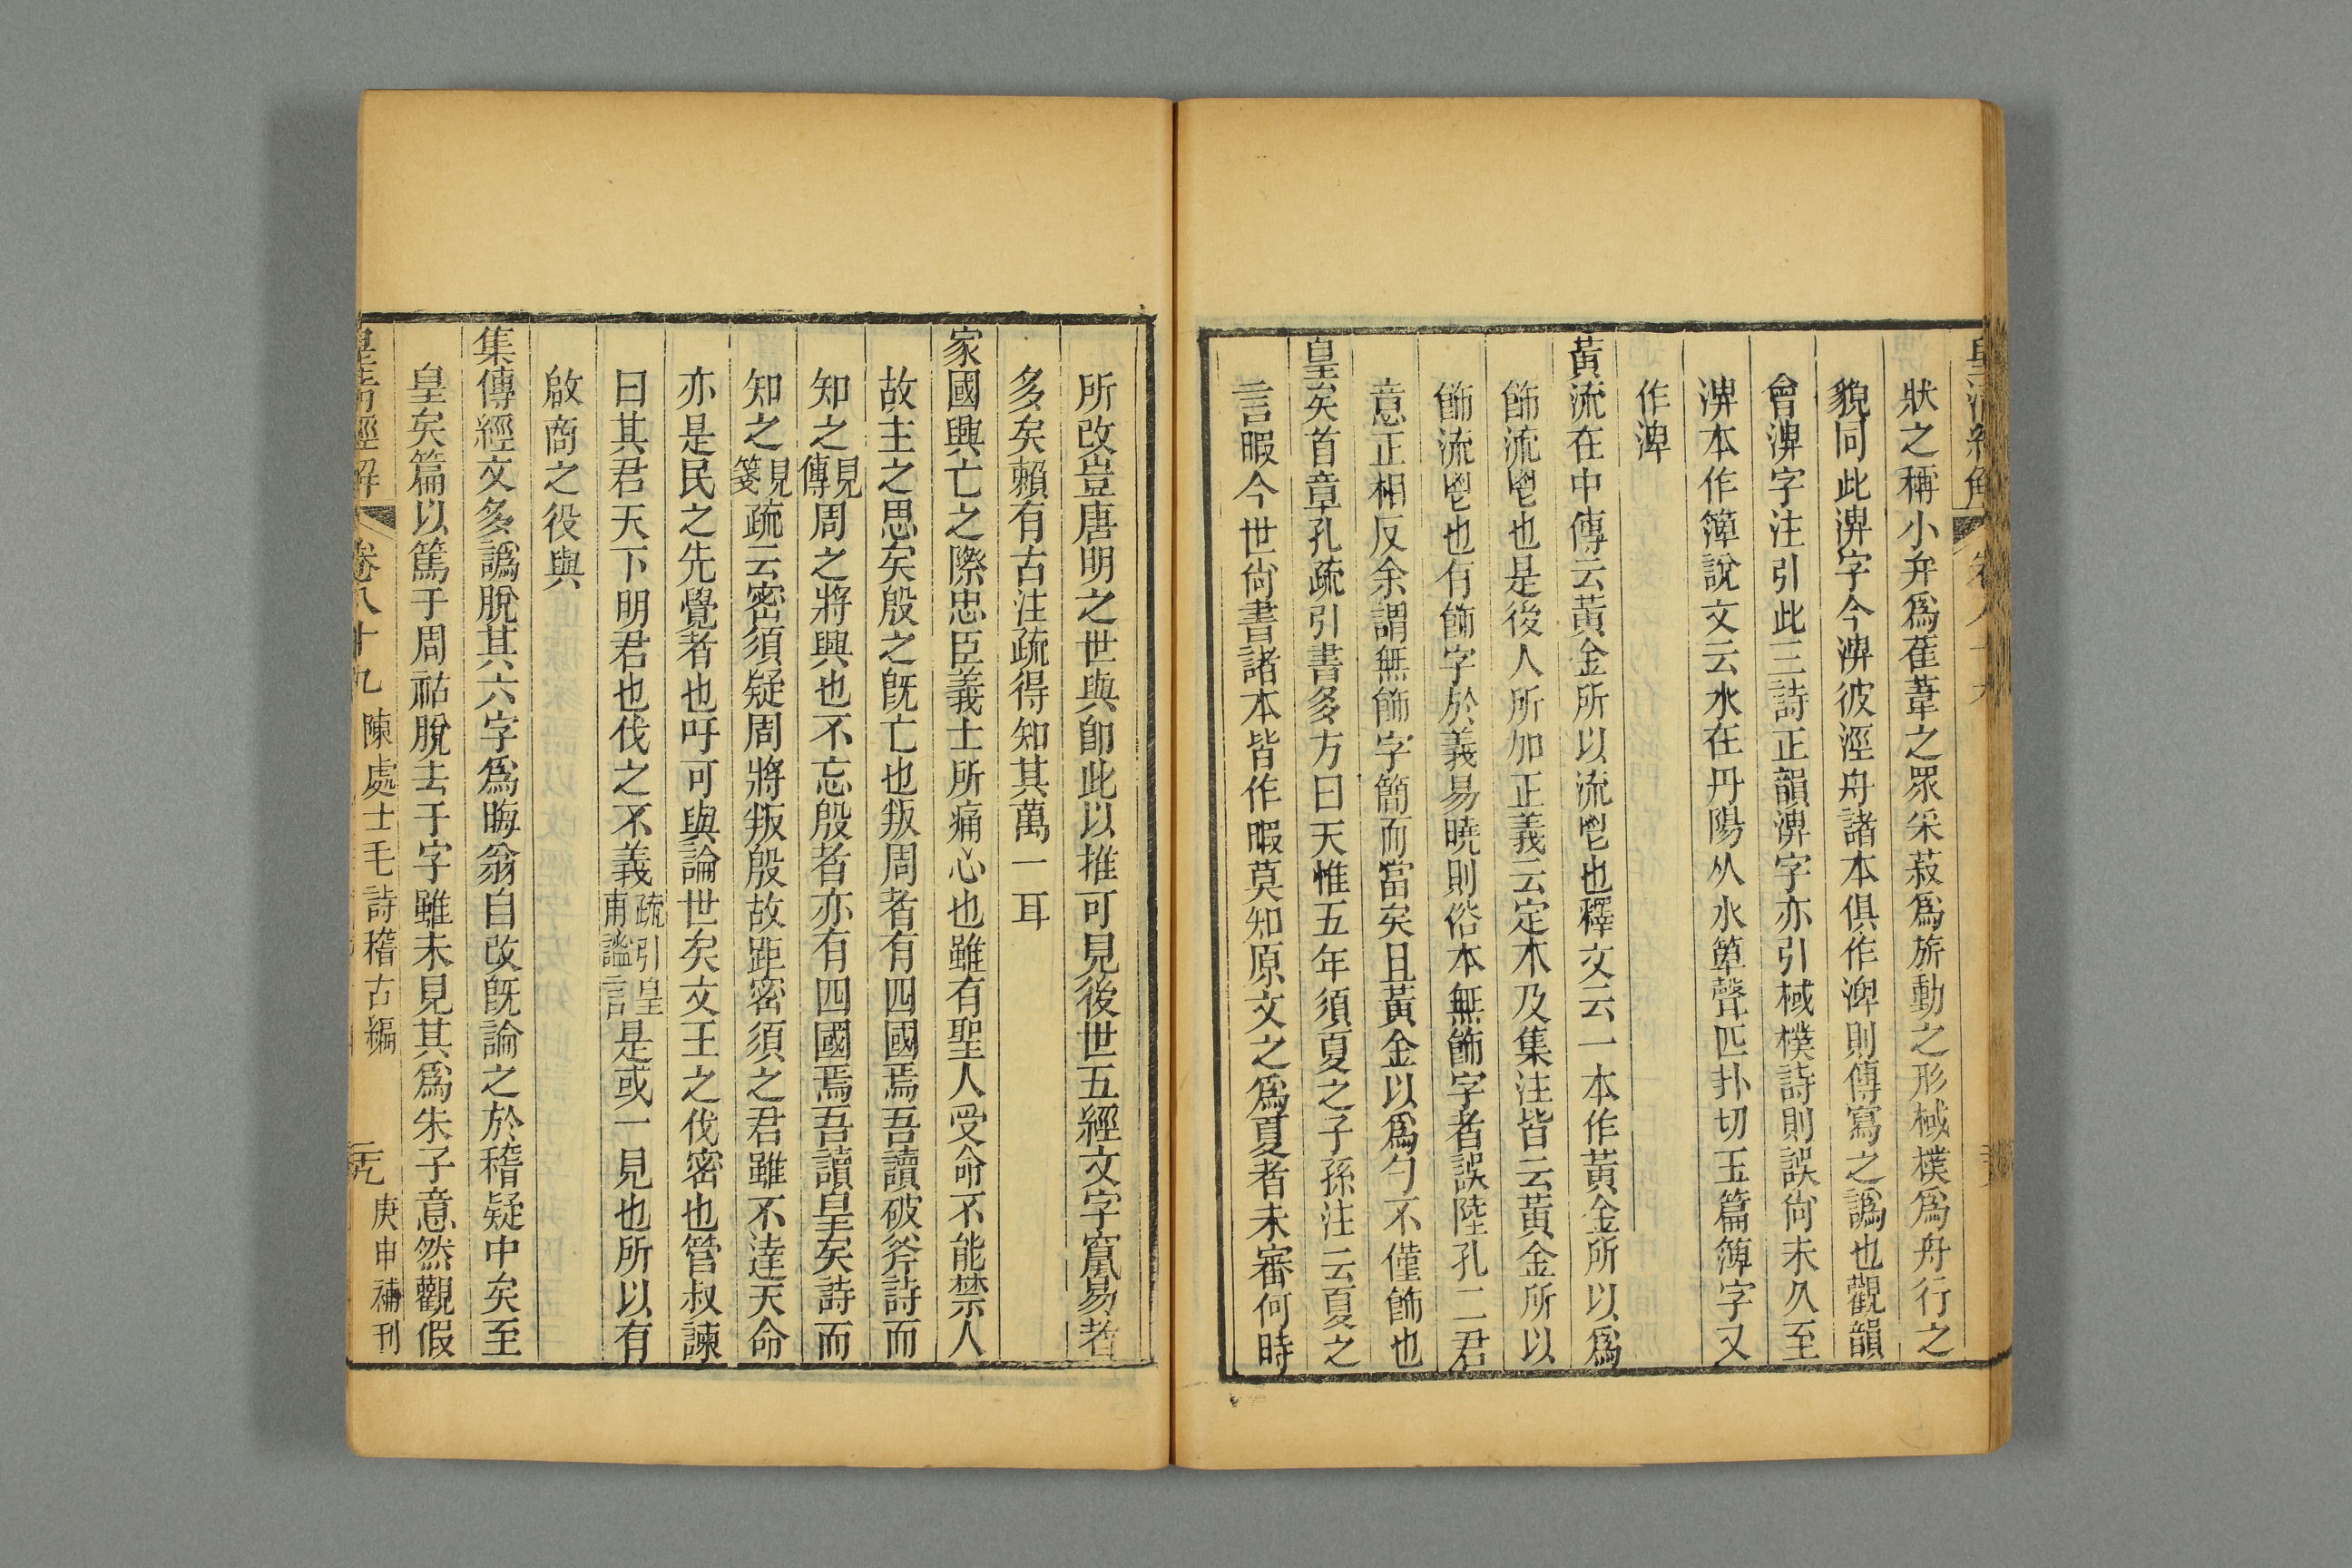 狀之稱小弁爲萑葦之眾采菽爲旂動之形棫樸爲舟行之
貌同此淠字今淠彼涇舟諸本俱作渒則傳寫之譌也觀韻
會淠字注引此三詩正韻淠字亦引棫樸詩則誤尙未久至
淠本作簰說文云水在丹陽从水箄聲匹扑切玉篇簰字又
作渒
黃流在中傳云黃金所以流鬯也釋文云一本作黃金所以爲
飾流鬯也是後人所加正義云定本及集注皆云黃金所以
飾流鬯也有飾字於義易曉則俗本無飾字者誤陸孔二君
意正相反余謂無飾字簡而當矣且黃金以爲勺不僅飾也
皇矣首章孔疏引書多方曰天惟五年須夏之子孫注云夏之
言暇今世尙書諸本皆作暇莫知原文之爲夏者未審何時
所改豈唐明之世與卽此以推可見後世五經文字竄易者
多矣賴有古注疏得知其萬一耳
家國興亡之際忠臣義士所痛心也雖有聖人受命不能禁人
故主之思矣殷之旣亡也叛周者有四國焉吾讀破斧詩而
知之見傳周之將興也不忘殷者亦有四國焉吾讀皇矣詩而
知之見箋疏云密須疑周將叛殷故距密須之君雖不達天命
亦是民之先覺者也吁可與論世矣文王之伐密也管叔諫
曰其君天下明君也伐之不義疏引皇甫謐言是或一見也所以有
啟商之役與
集傳經文多譌脫其六字爲晦翁自改旣論之於稽疑中矣至
皇矣篇以篤于周祜脫去于字雖未見其爲朱子意然觀假
皇淸經解 卷八十九 陳處士毛詩稽古編 元 庚申補刊